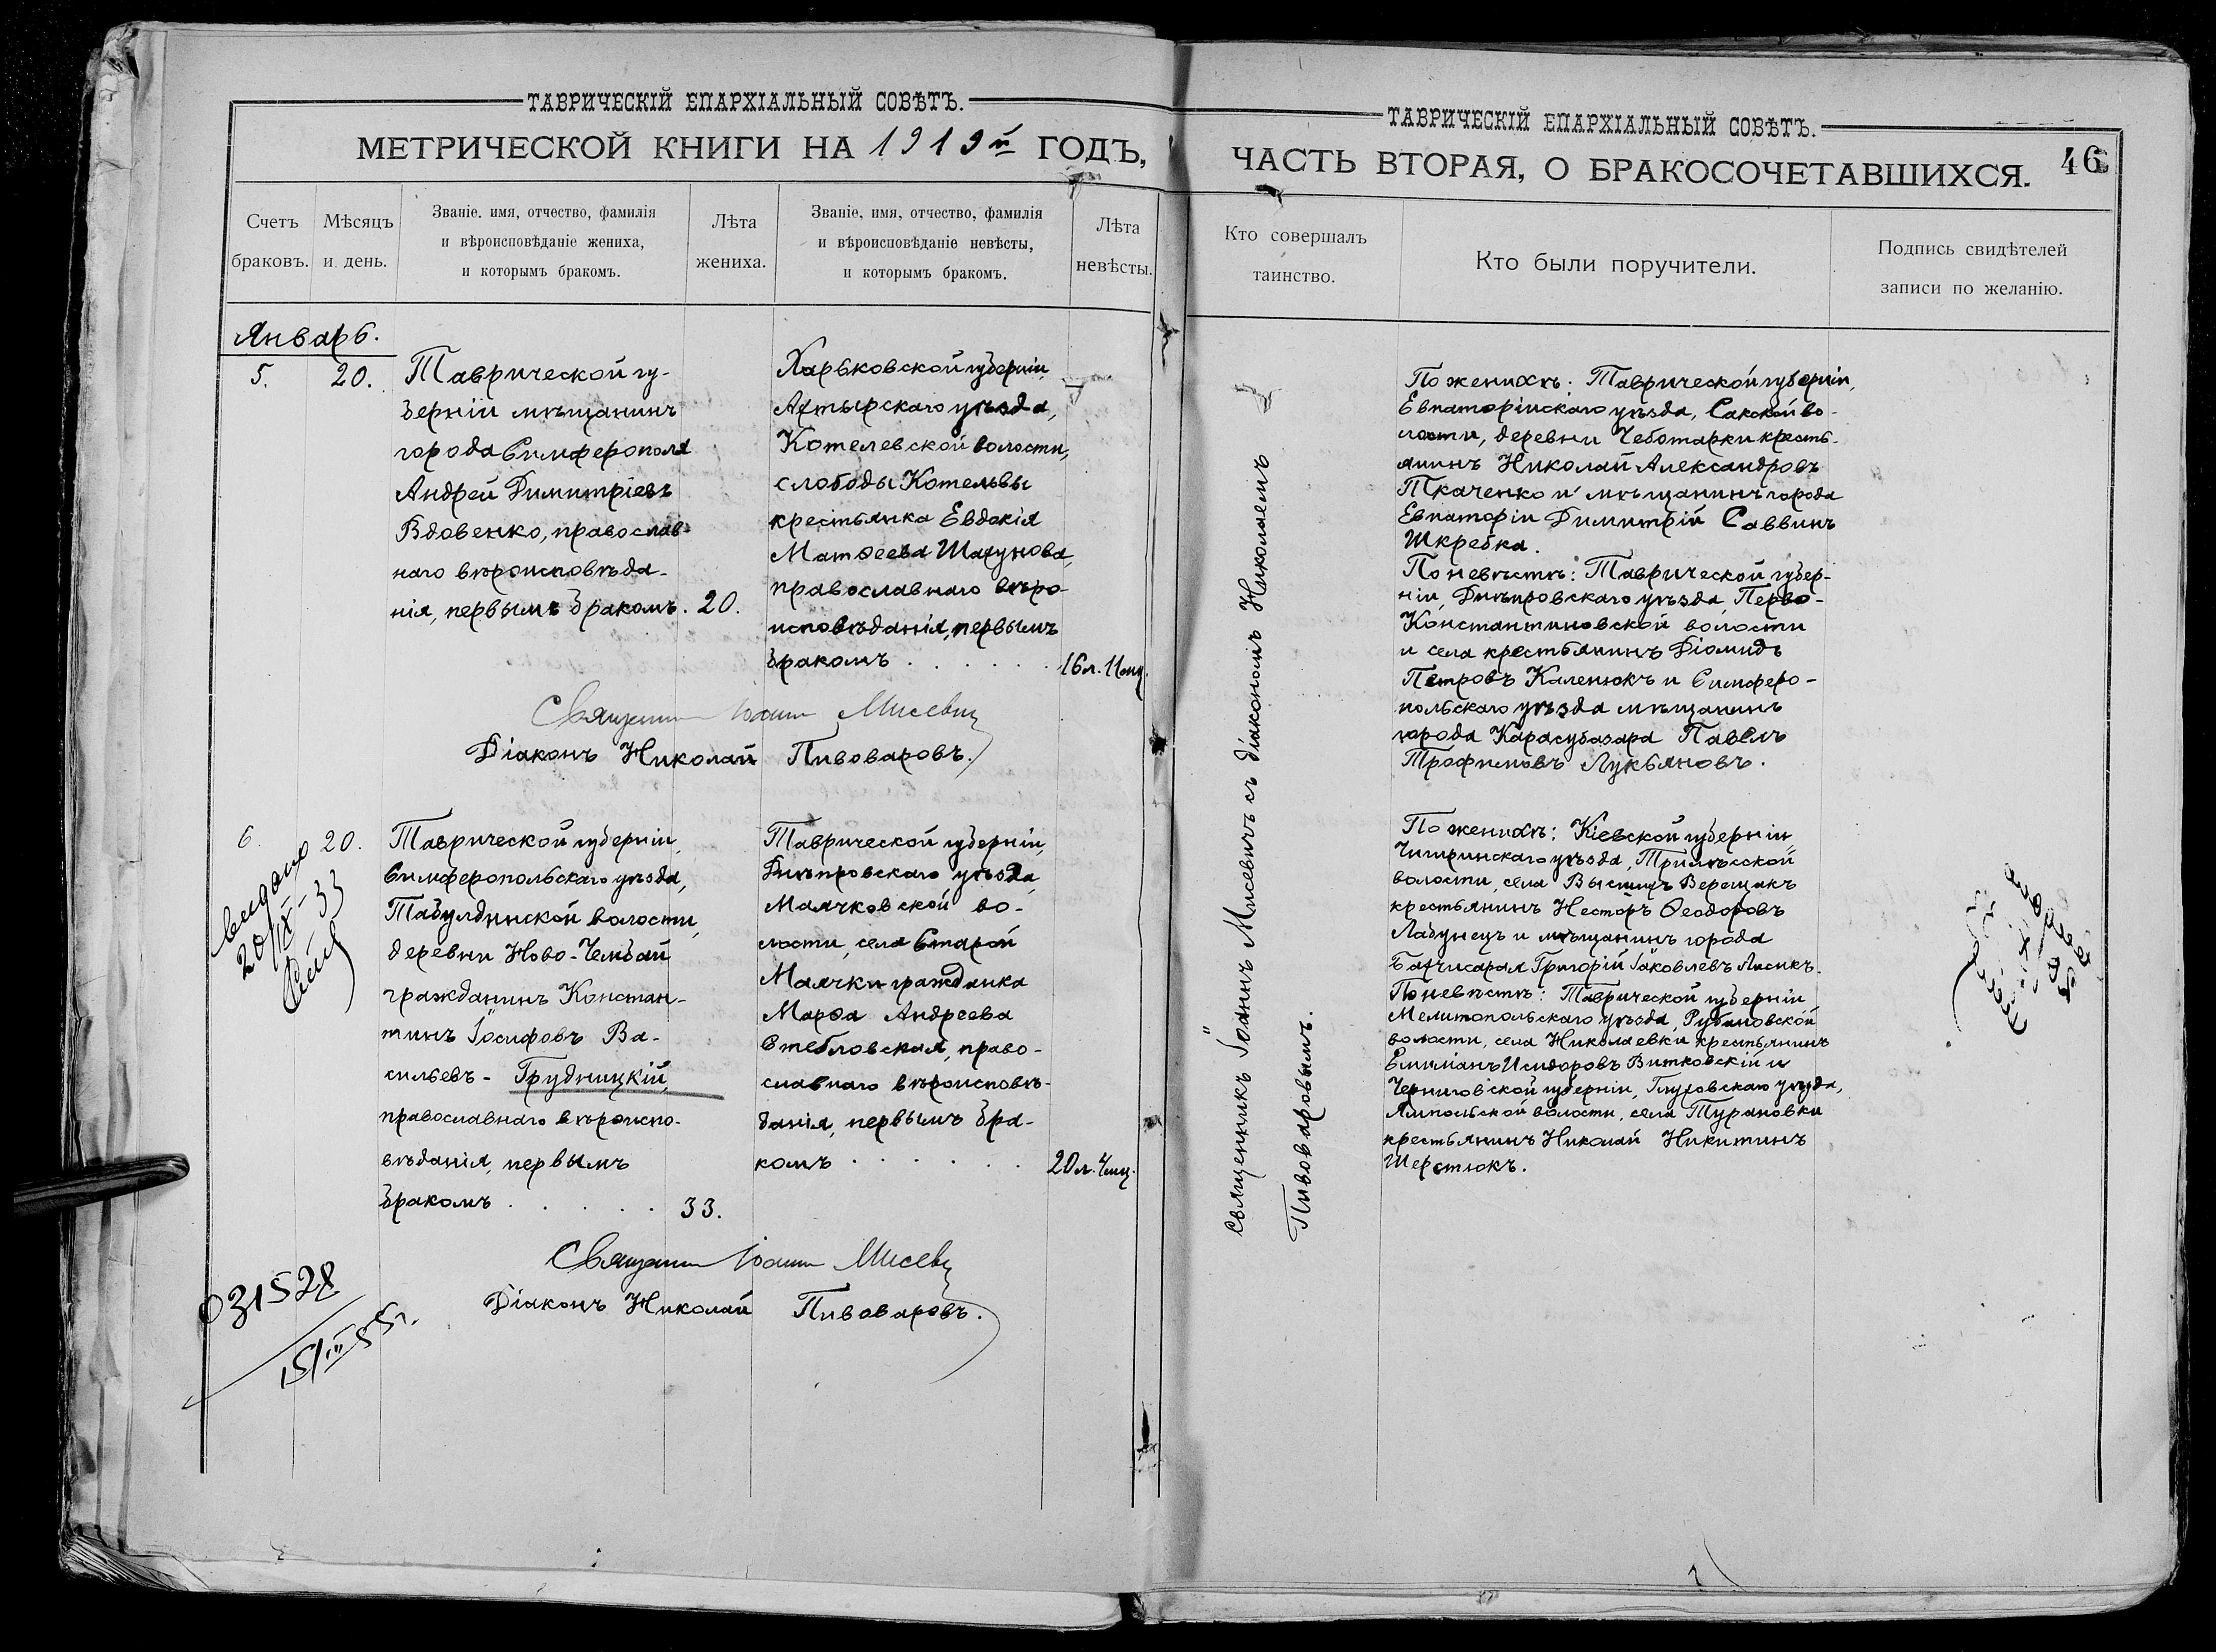 ТАВРИЧЕСКІЙ ЕПАРХІАЛЬНЫЙ СОВѢТЪ.
МЕТРИЧЕСКОЙ КНИГИ НА 1919й ГОДЪ,
Счетъ браковъ.
Мѣсяцъ и день.
Званіе, имя, отчество, фамилія
и вѣроисповѣданіе жениха,
и которымъ бракомъ.
Лѣта жениха.
Званіе, имя, отчество, фамилія
и вѣроисповѣданіе невѣсты,
и которымъ бракомъ.
Лѣта невѣсты.
Январь.
5. 20.
Таврической гу-
берніи мѣщанинъ
города Симферополя
Андрей Димитріевъ
Вдовенко, православ-
наго вѣроисповѣда-
нія, первымъ бракомъ. 20.
Харьковской губерніи,
Ахтырскаго уѣзда,
Котелевской волости,
слободы Котельвы
крестьянка Евдокія
Матѳеева Шапунова,
православнаго вѣро-
исповѣданія, первымъ
бракомъ . . . . . . 16 л. 11 мц.
Священникъ Іоаннъ Мисевичъ
Діаконъ Николай Пивоваровъ.
6. 20.
выдано
20/IX-33
Таврической губерніи,
Симферопольскаго уѣзда,
Табулдинской волости,
деревни Ново-Чембай
гражданинъ Констан-
тинъ Іосифовъ Ва-
сильевъ - Грудницкій,
православнаго вѣроиспо-
вѣданія, первымъ
бракомъ . . . . . 33.
Таврической губерніи,
Днѣпровскаго уѣзда,
Маячковской во-
лости, села Старой
Маячки гражданка
Марѳа Андреева
Стебловская, право-
славнаго вѣроисповѣ-
данія, первымъ бра-
комъ . . . . . . 20 л. 4 мц.
Священникъ Іоаннъ Мисевичъ
Діаконъ Николай Пивоваровъ.
031528
15/III 55 г.
ТАВРИЧЕСКІЙ ЕПАРХІАЛЬНЫЙ СОВѢТЪ.
ЧАСТЬ ВТОРАЯ, О БРАКОСОЧЕТАВШИХСЯ. 46
Кто совершалъ
таинство.
Кто были поручители.
Подпись свидѣтелей
записи по желанію.
Священникъ Іоаннъ Мисевичъ съ діакономъ Николаемъ
Пивоваровымъ.
По женихѣ: Таврической губерніи,
Евпаторійскаго уѣзда, Сакской во-
лости, деревни Чеботарки кресть-
янинъ Николай Александровъ
Ткаченко и мѣщанинъ города
Евпаторіи Димитрій Саввинъ
Шкребка.
По невѣстѣ: Таврической губер-
ніи, Днѣпровскаго уѣзда, Перво-
Константиновской волости
и села крестьянинъ Діомидъ
Петровъ Каленюкъ и Симферо-
польскаго уѣзда мѣщанинъ
города Карасубазара Павелъ
Трофимовъ Лукьяновъ.
По женихѣ: Кіевской губерніи,
Чигиринскаго уѣзда, Трилѣсской
волости, села Высшихъ Верещакъ
крестьянинъ Несторъ Ѳеодоровъ
Лабунецъ и мѣщанинъ города
Бахчисарая Григорій Іаковлевъ Лисикъ.
По невѣстѣ: Таврической губерніи
Мелитопольскаго уѣзда, Рубановской
волости, села Николаевки крестьянинъ
Емиліанъ Исидоровъ Витковскій и
Черниговской губерніи, Глуховскаго уѣзда,
Ямпольской волости, села Турановки
крестьянинъ Николай Никитинъ
Шерстюкъ.